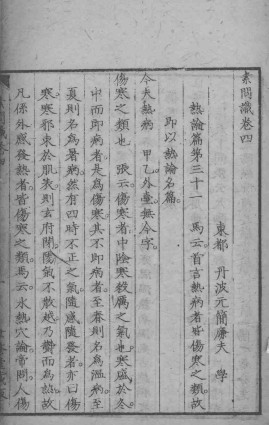 素問識卷四
東都 丹波元簡廉夫 學
熱論篇第三十一 馬云首言熱病者皆傷寒之類故
即以熱論名篇
今夫熱病 甲乙外臺無今字
傷寒之類也 張云傷寒者中陰寒殺厲之氣也寒盛於冬
中而即病者是為傷寒其不即病者至春則名為溫病至
夏則名為暑病然有四時不正之氣隨感隨發者亦曰傷
寒寒邪束於肌表則玄府閉陽氣不散越乃鬱而為熱故
凡係外感發熱者皆傷寒之類馬云水熱穴論帝問人傷